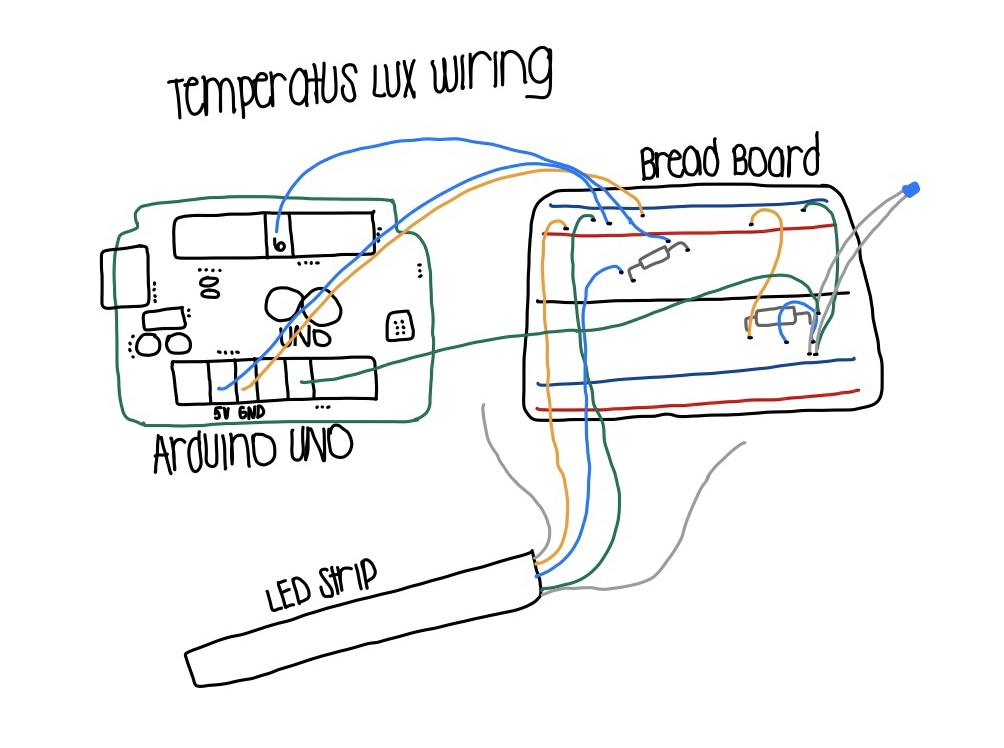 Temperatus Lux Wiring
Bread Board
6
UNO
5V GND
Arduino UNO
LED Strip